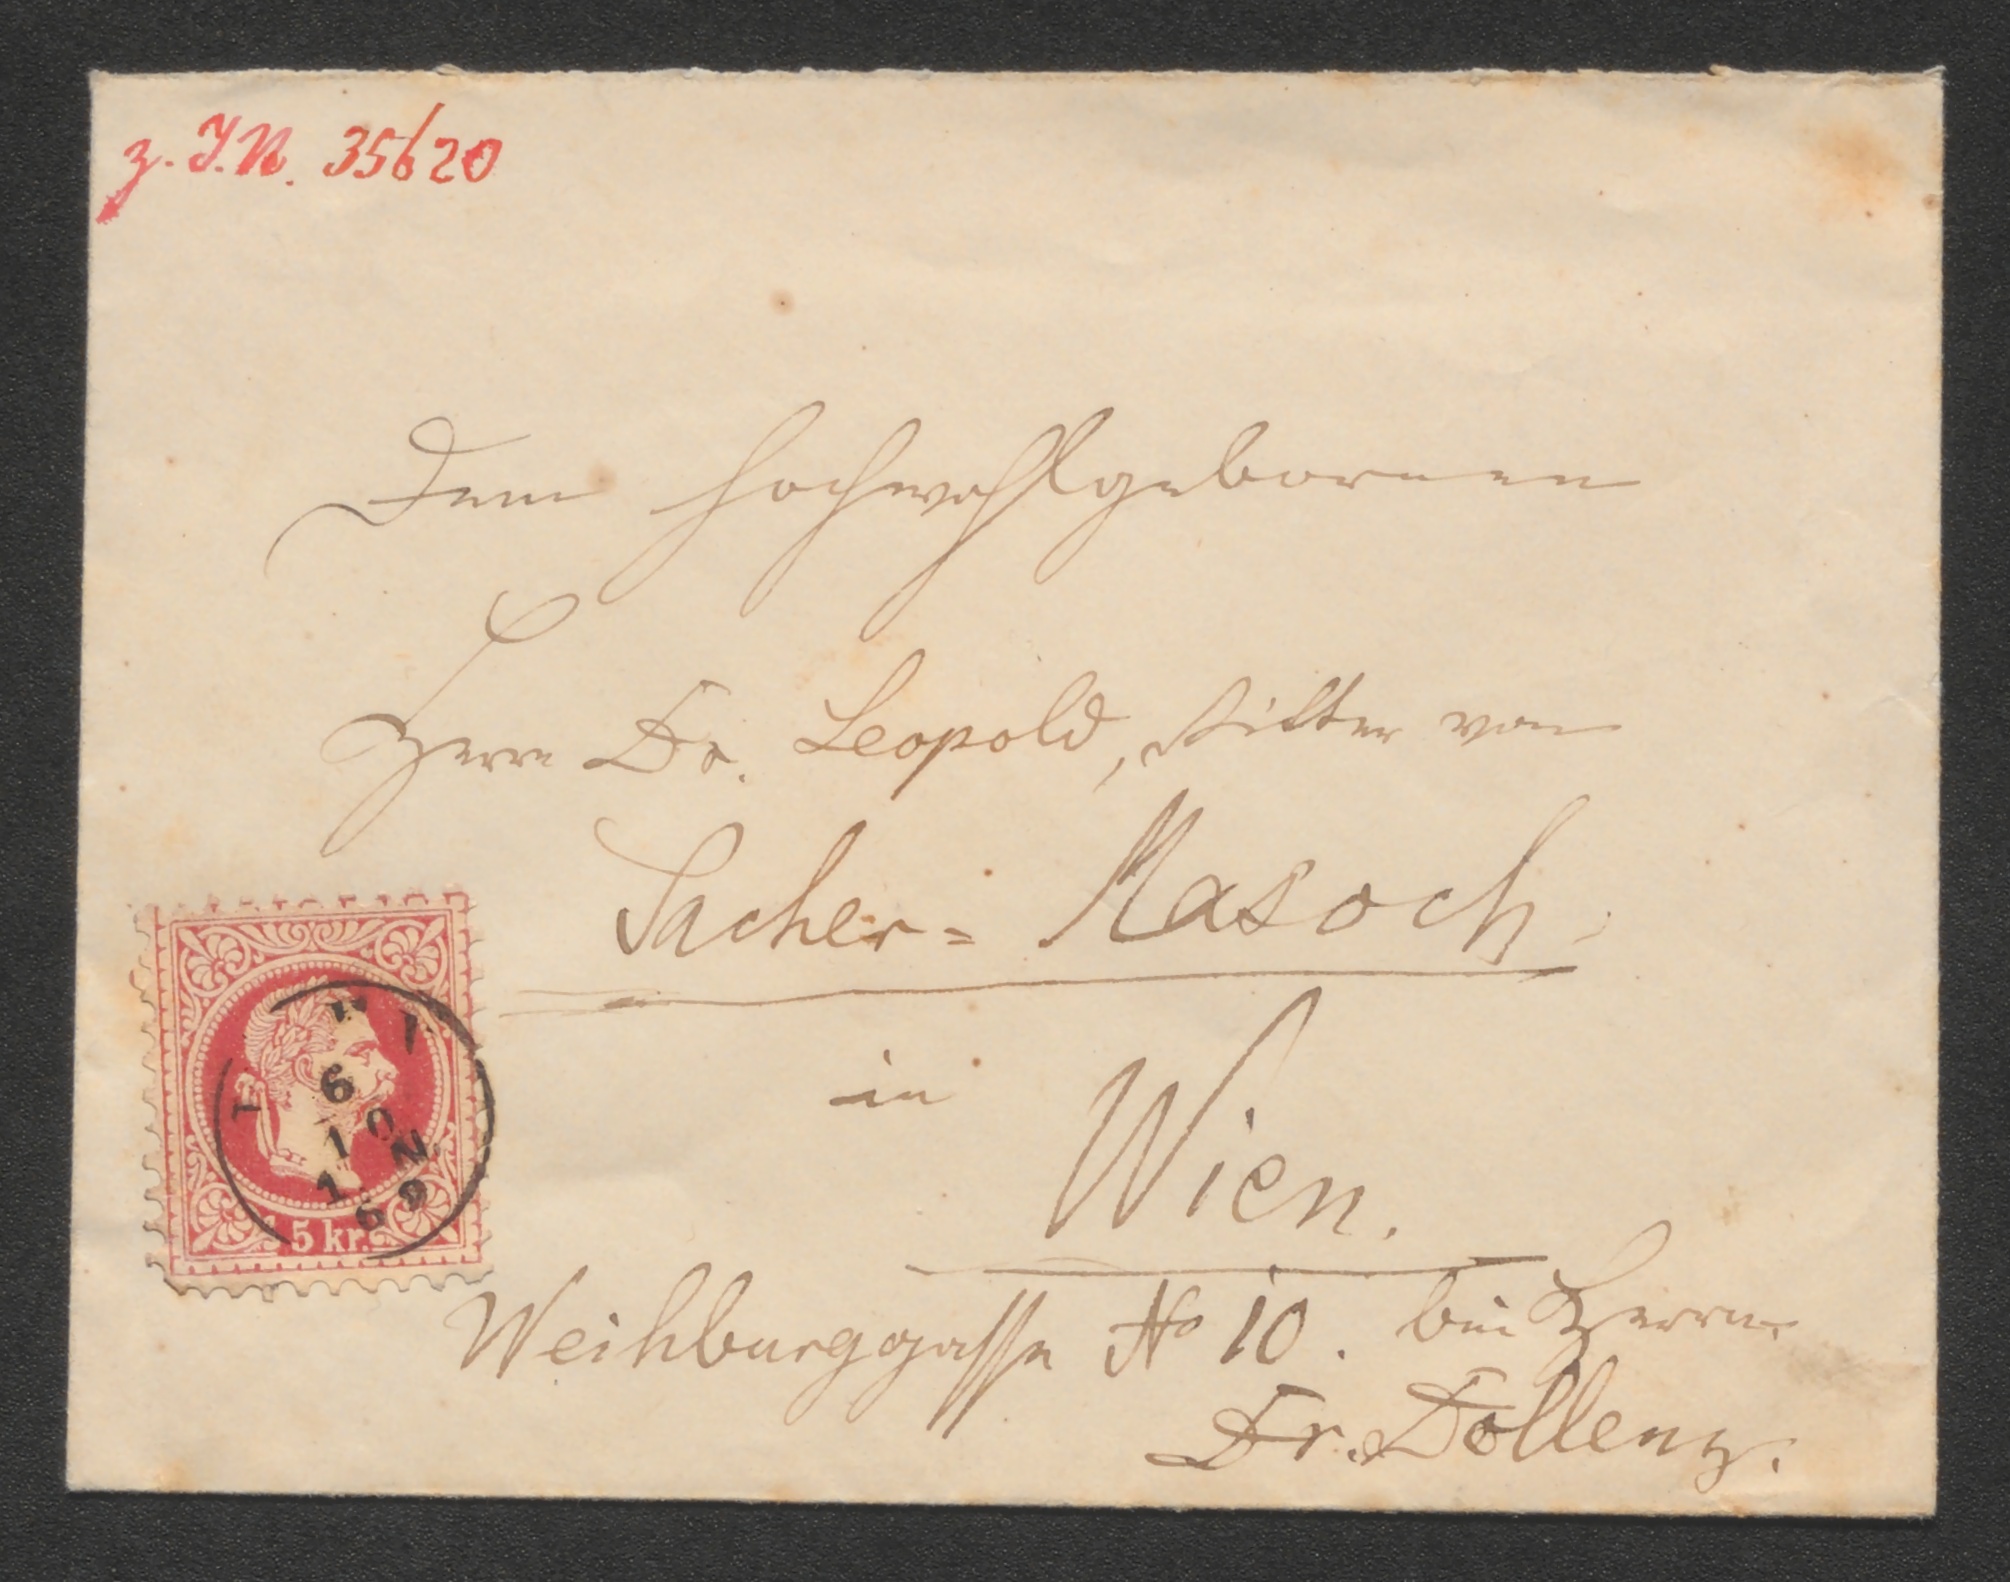 z. I.N. 35620
Dem Hochwohlgebornen
Herrn Dr. Leopold, Ritter von
Sacher=Masoch
in Wien.
Weihburggasse No 10. bei Herrn
Dr. Dollenz.
6
10
1 N
69
5 kr.